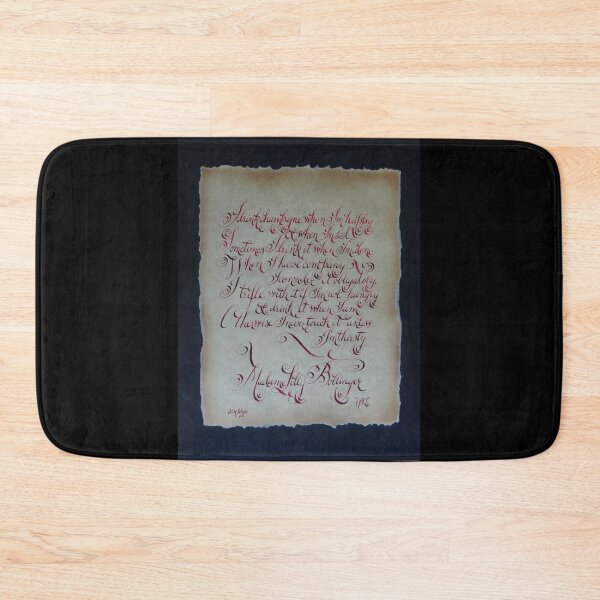 I drink champagne when I'm happy
& when I'm sad
Sometimes I drink it when I'm alone
When I have company
I consider it obligatory
I trifle with it if I'm not hungry
& drink it when I am
Otherwise I never touch it unless
I'm thirsty
Madame Lilly Bollinger